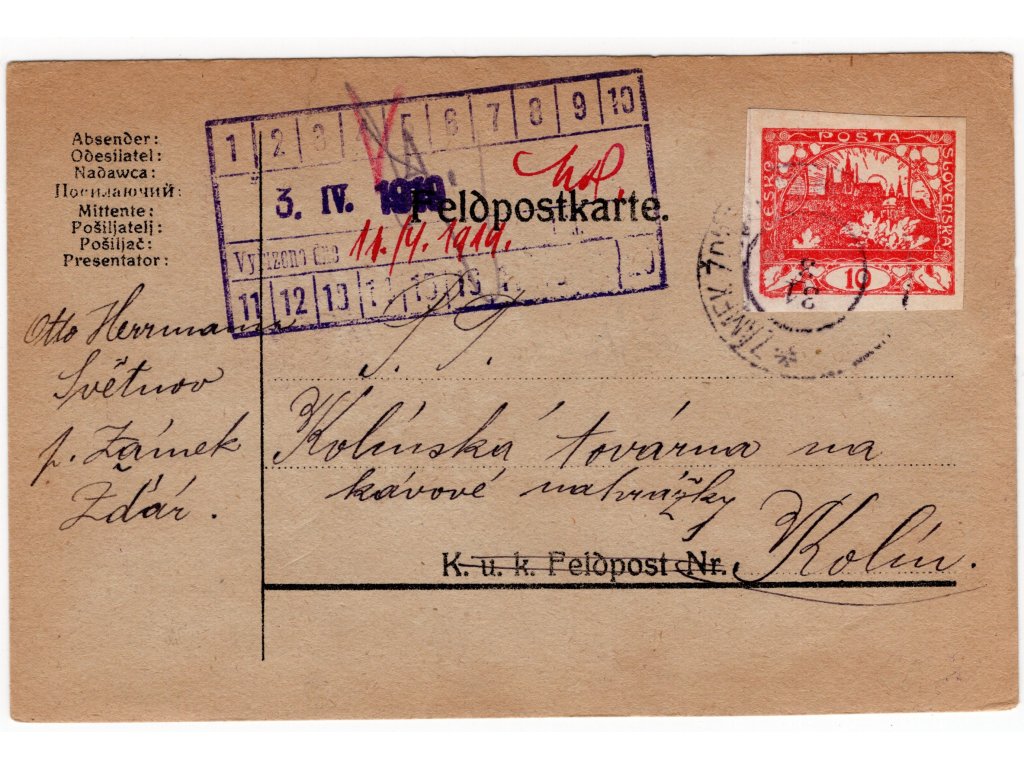 Absender:
Odesílatel:
Nadawca:
Посилаючий:
Mittente:
Pošiljatelj:
Pošiljač:
Presentator:
1 2 3 4 5 6 7 8 9 10
3. IV. 1919.
Feldpostkarte.
Vyřízeno dne 11./4. 1919.
11 12 13 14 15 16 20
POSTA
ČESKO
SLOVENSKÁ
10
* ZÁMEK ŽĎÁR
Otto Herrmann
Světnov
p. Zámek
Žďár.
Kolínská továrna na
kávové náhrážky
K. u. k. Feldpost Nr.
Kolín.